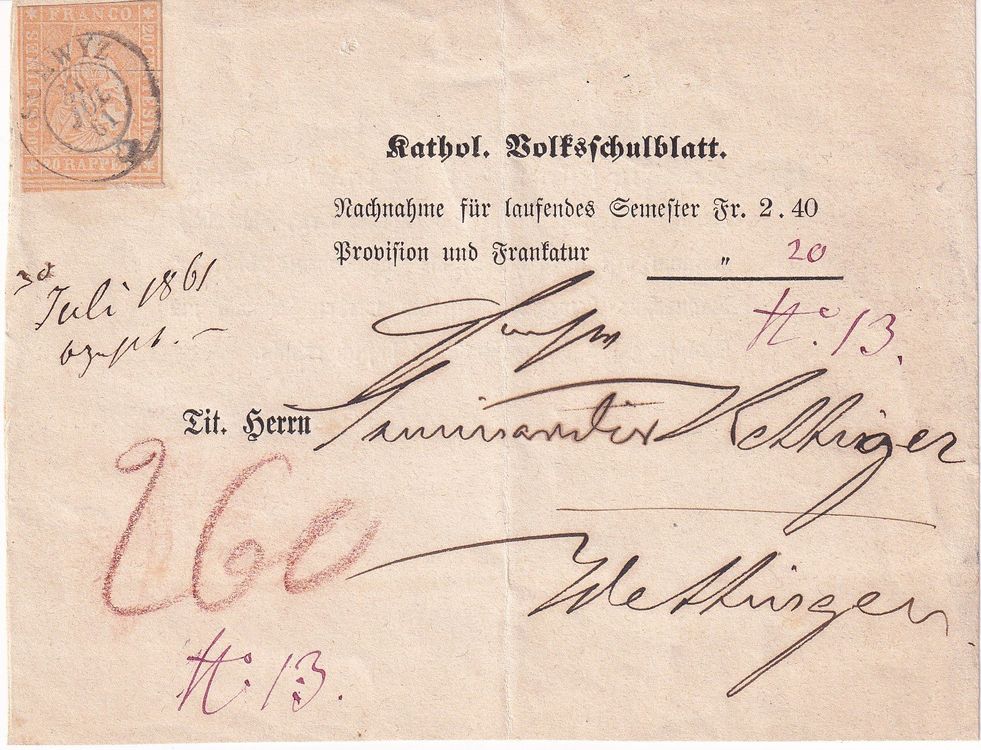 FRANCO
20 RAPPEN
SCHWYZ
JUL
61
Kathol. Volksschulblatt.
Nachnahme für laufendes Semester Fr. 2.40
Provision und Frankatur " 20
No. 13.
30
Juli 1861
Tit. Herrn Kettiger
260
Wettingen
No. 13.